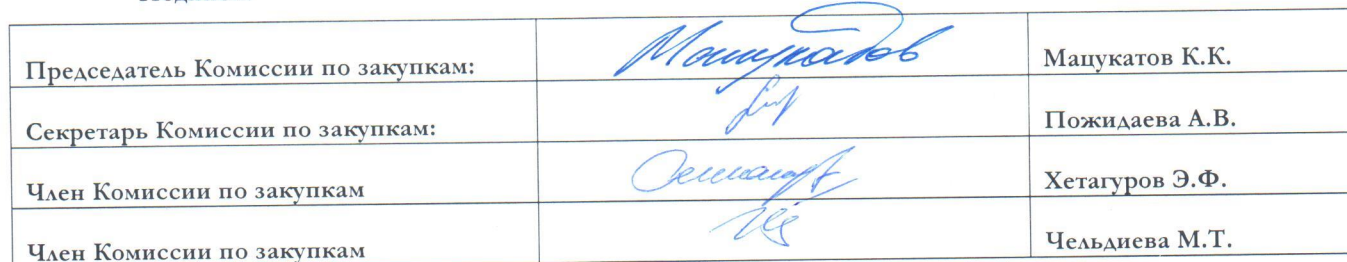 Председатель Комиссии по закупкам: Мацукатов Мацукатов К.К.
Секретарь Комиссии по закупкам: Пожидаева А.В.
Член Комиссии по закупкам Хетагуров Э.Ф.
Член Комиссии по закупкам Чельдиева М.Т.